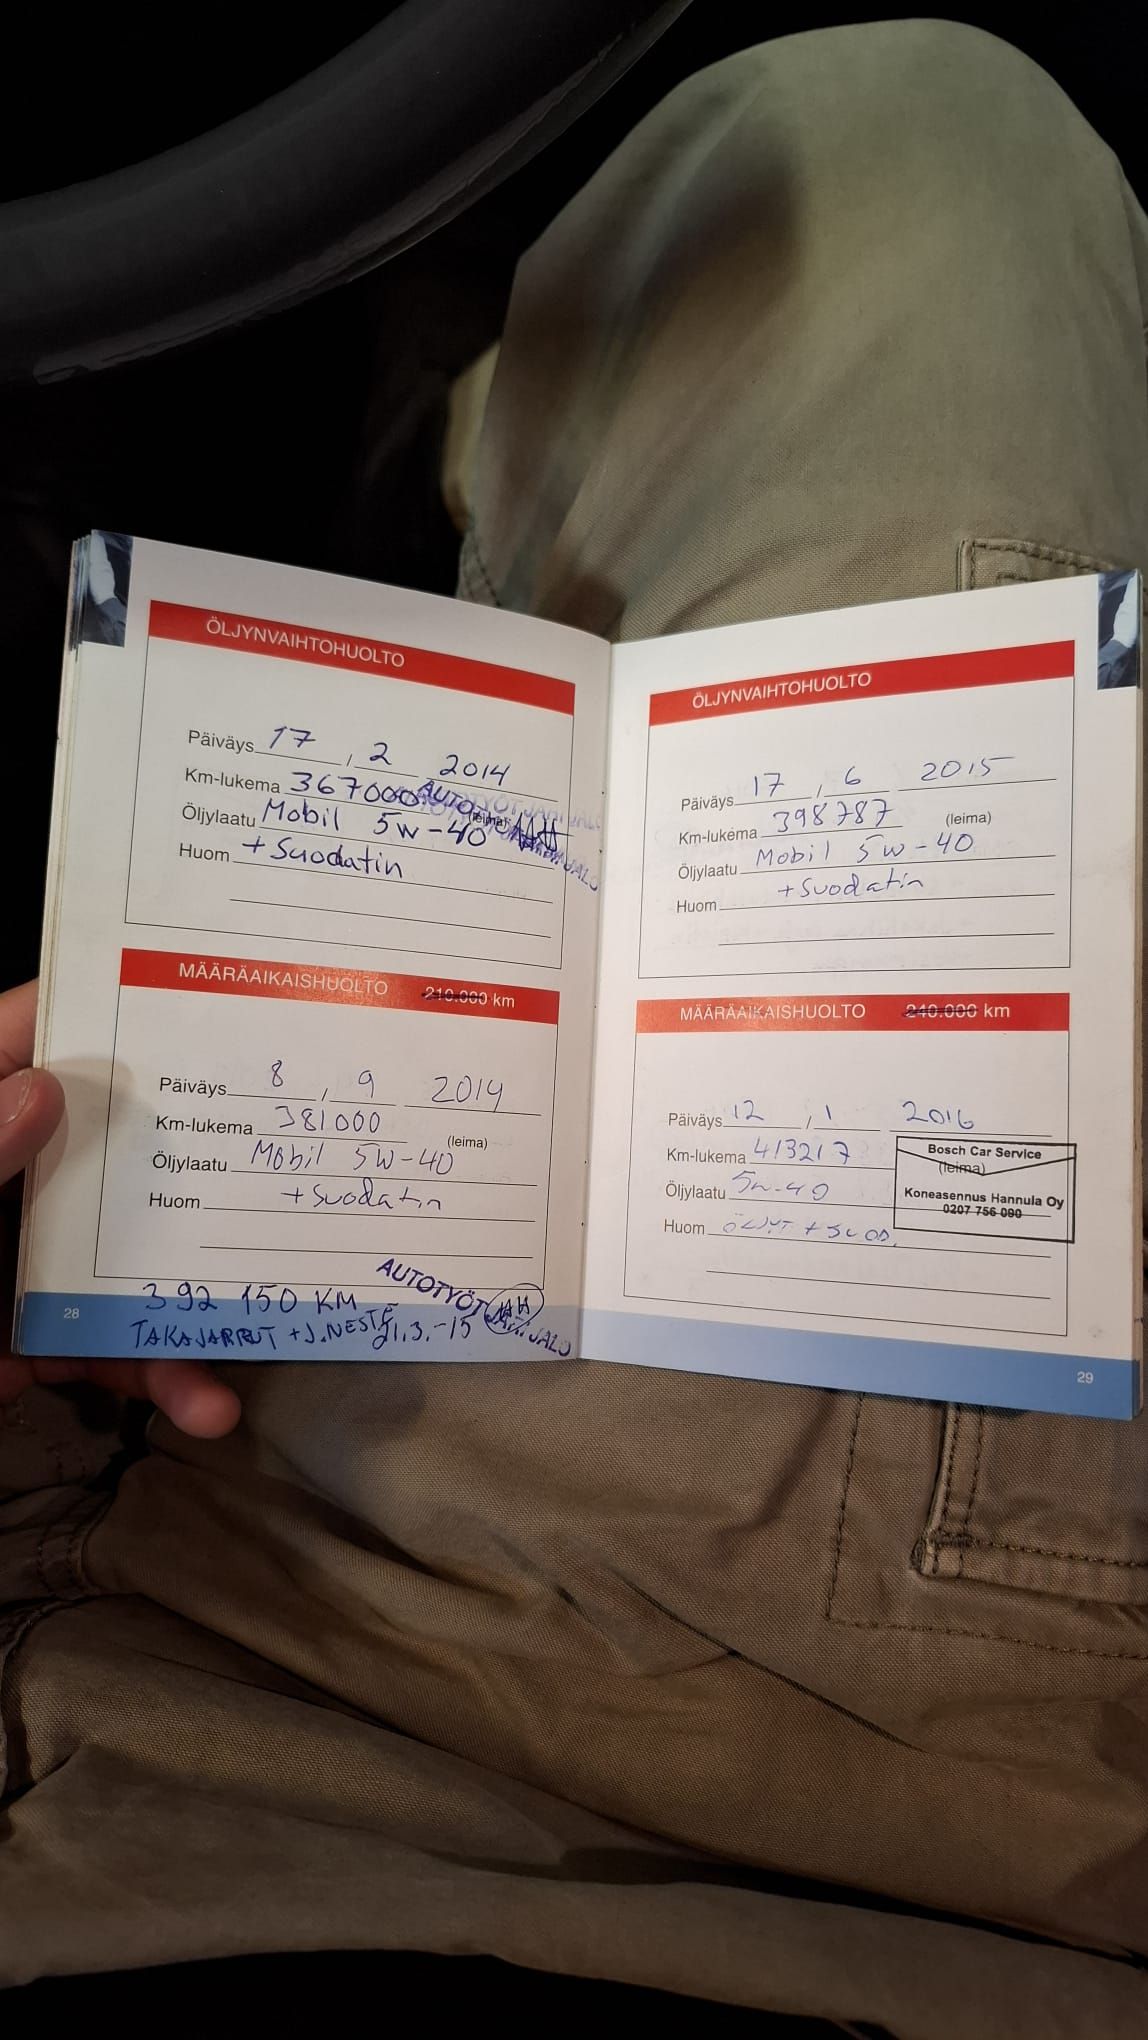 ÖLJYNVAIHTOHUOLTO
Päiväys 17 , 2 2014
Km-lukema 367000
AUTOTYÖT JARI JALO
(leima)
Öljylaatu Mobil 5w-40
Huom + Suodatin
MÄÄRÄAIKAISHUOLTO 210.000 km
Päiväys 8 , 9 2014
Km-lukema 381000
(leima)
Öljylaatu Mobil 5w-40
Huom + Suodatin
392 150 KM
AUTOTYÖT JARI JALO
TAKAJARRUT + J.NESTE
21.3.-15
28
ÖLJYNVAIHTOHUOLTO
Päiväys 17 , 6 2015
Km-lukema 398787
(leima)
Öljylaatu Mobil 5w-40
Huom + Suodatin
MÄÄRÄAIKAISHUOLTO 240.000 km
Päiväys 12 , 1 2016
Km-lukema 413217
Bosch Car Service
(leima)
Öljylaatu 5w-40
Koneasennus Hannula Oy
0207 756 090
Huom ÖLJYT + SUOD.
29